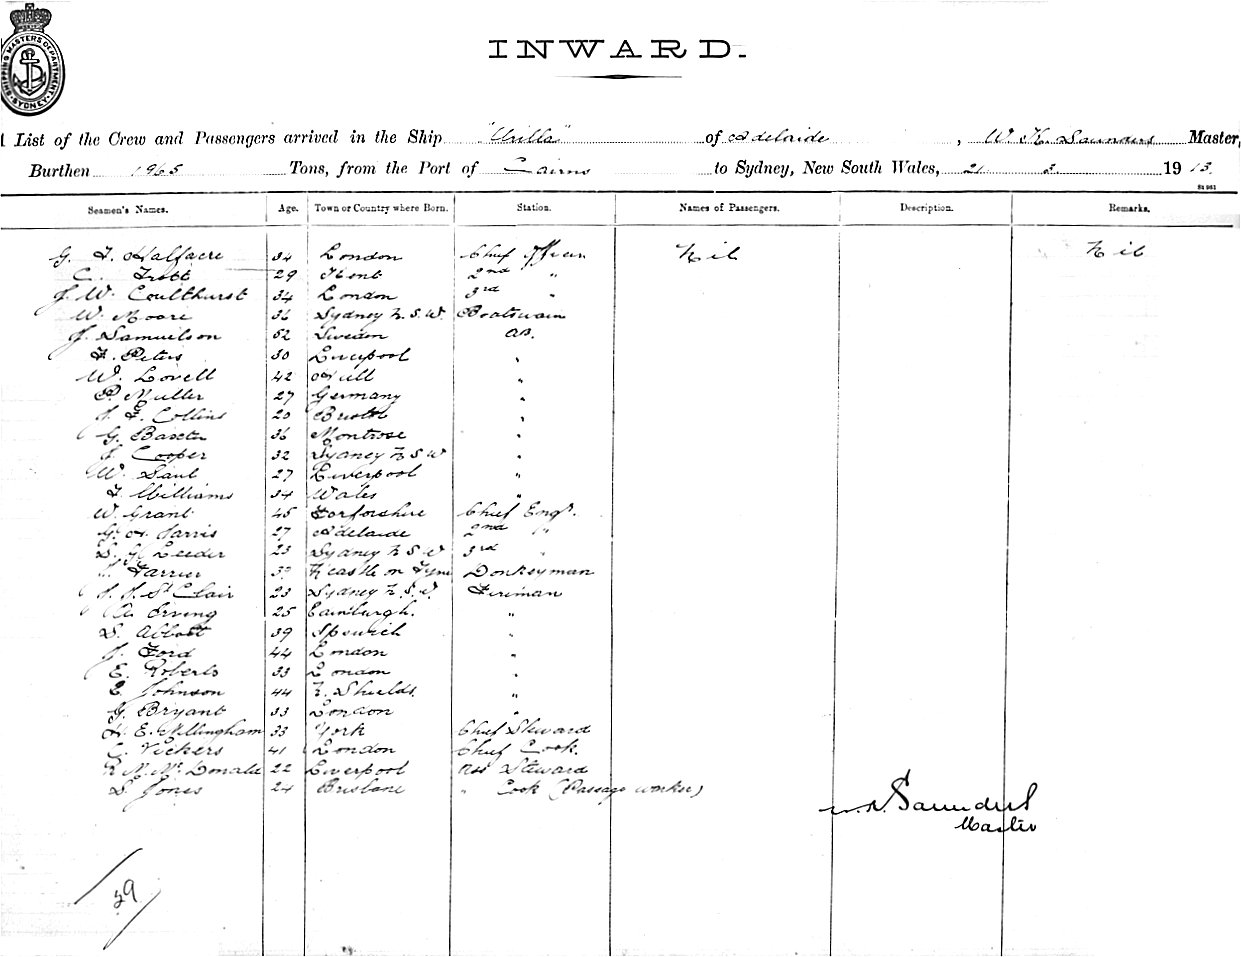 SHIPPING MASTERS DEPARTMENT SYDNEY
INWARD.
List of the Crew and Passengers arrived in the Ship "Urilla" of Adelaide, W. H. Saunders Master,
Burthen 1965 Tons, from the Port of Cairns to Sydney, New South Wales, 21 3 1913
Seamen's Names. Age. Town or Country where Born. Station. Names of Passengers. Description. Remarks.
G. F. Halfacre 34 London Chief Officer Nil Nil
C. Trott 29 Kent 2nd "
J. W. Coulthurst 34 London 3rd "
W. Moore 36 Sydney N.S.W. Boatswain
J. Samuelson 52 Sweden AB.
F. Peters 30 Liverpool "
W. Lovell 42 Hull "
P. Muller 27 Germany "
J. F. Collins 20 Bristol "
G. Baxter 36 Montrose "
J. Cooper 32 Sydney N S W "
W. Saul 27 Liverpool "
F. Williams 34 Wales "
W. Grant 45 Forfarshire Chief Engr.
G. H. Harris 27 Adelaide 2nd "
S. G. Leeder 23 Sydney N S W 3rd "
J. Farrier N'castle on Tyne Donkeyman
J. J. St Clair 23 Sydney N.S.W. Fireman
A. Irving 25 Edinburgh. "
S. Abbott 39 Ipswich "
J. Ford 44 London "
E. Roberts 33 London "
E. Johnson 44 N. Shields. "
G. Bryant 33 London "
H. E. Millingham 33 York Chief Steward
C. Vickers 41 London Chief Cook.
R M. McDonald 22 Liverpool Ass Steward
S. Jones 24 Brisbane " Cook (Passage worker)
W. H. Saunders
Master
29